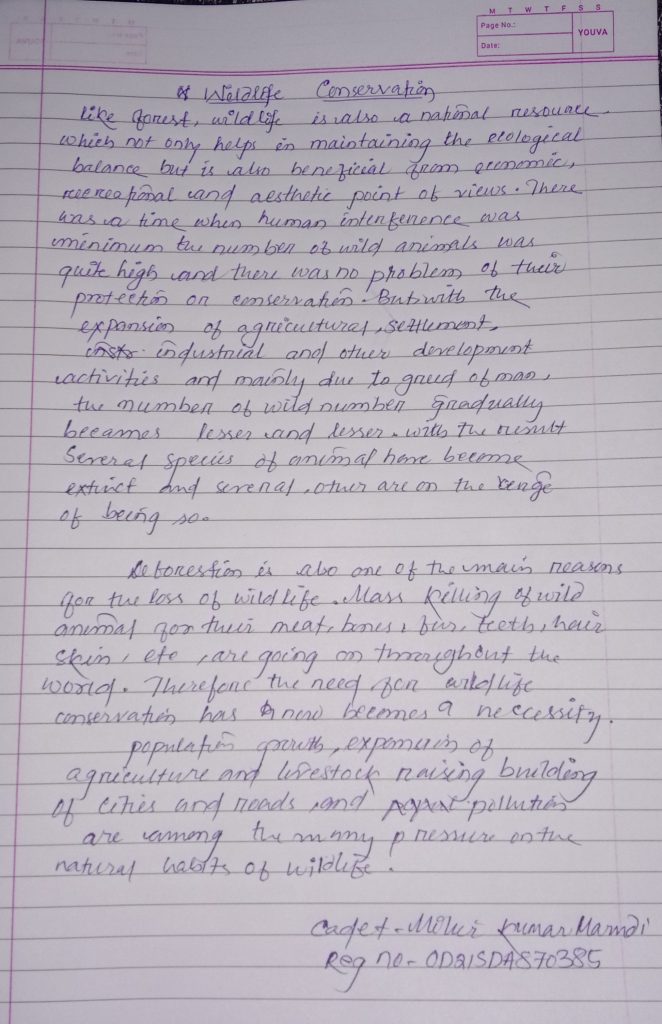 M T W T F S S
Page No.:
YOUVA
Date:
Wildlife Conservation
like forest, wildlife is also a national resource
which not only helps in maintaining the ecological
balance but is also beneficial from economic,
recreational and aesthetic point of views. There
was a time when human interference was
minimum the number of wild animals was
quite high and there was no problem of their
protection or conservation. But with the
expansion of agricultural, settlement,
industrial and other development
activities and mainly due to greed of man,
the number of wild number gradually
becames lesser and lesser. with the result
Several species of animal have become
extinct and several, other are on the verge
of being so.
Deforestion is also one of the main reasons
for the loss of wildlife. Mass killing of wild
animal for their meat, bones, fur, teeth, hair
skin, etc, are going on throughout the
world. Therefore the need for wildlife
conservation has now becomes a neccessity.
population growth, of
agriculture and livestock raising building
of cities and roads, and pollution
are among the many pressure on the
natural habits of wildlife.
Cadet - Kumar
Reg no - OD21SDA870385